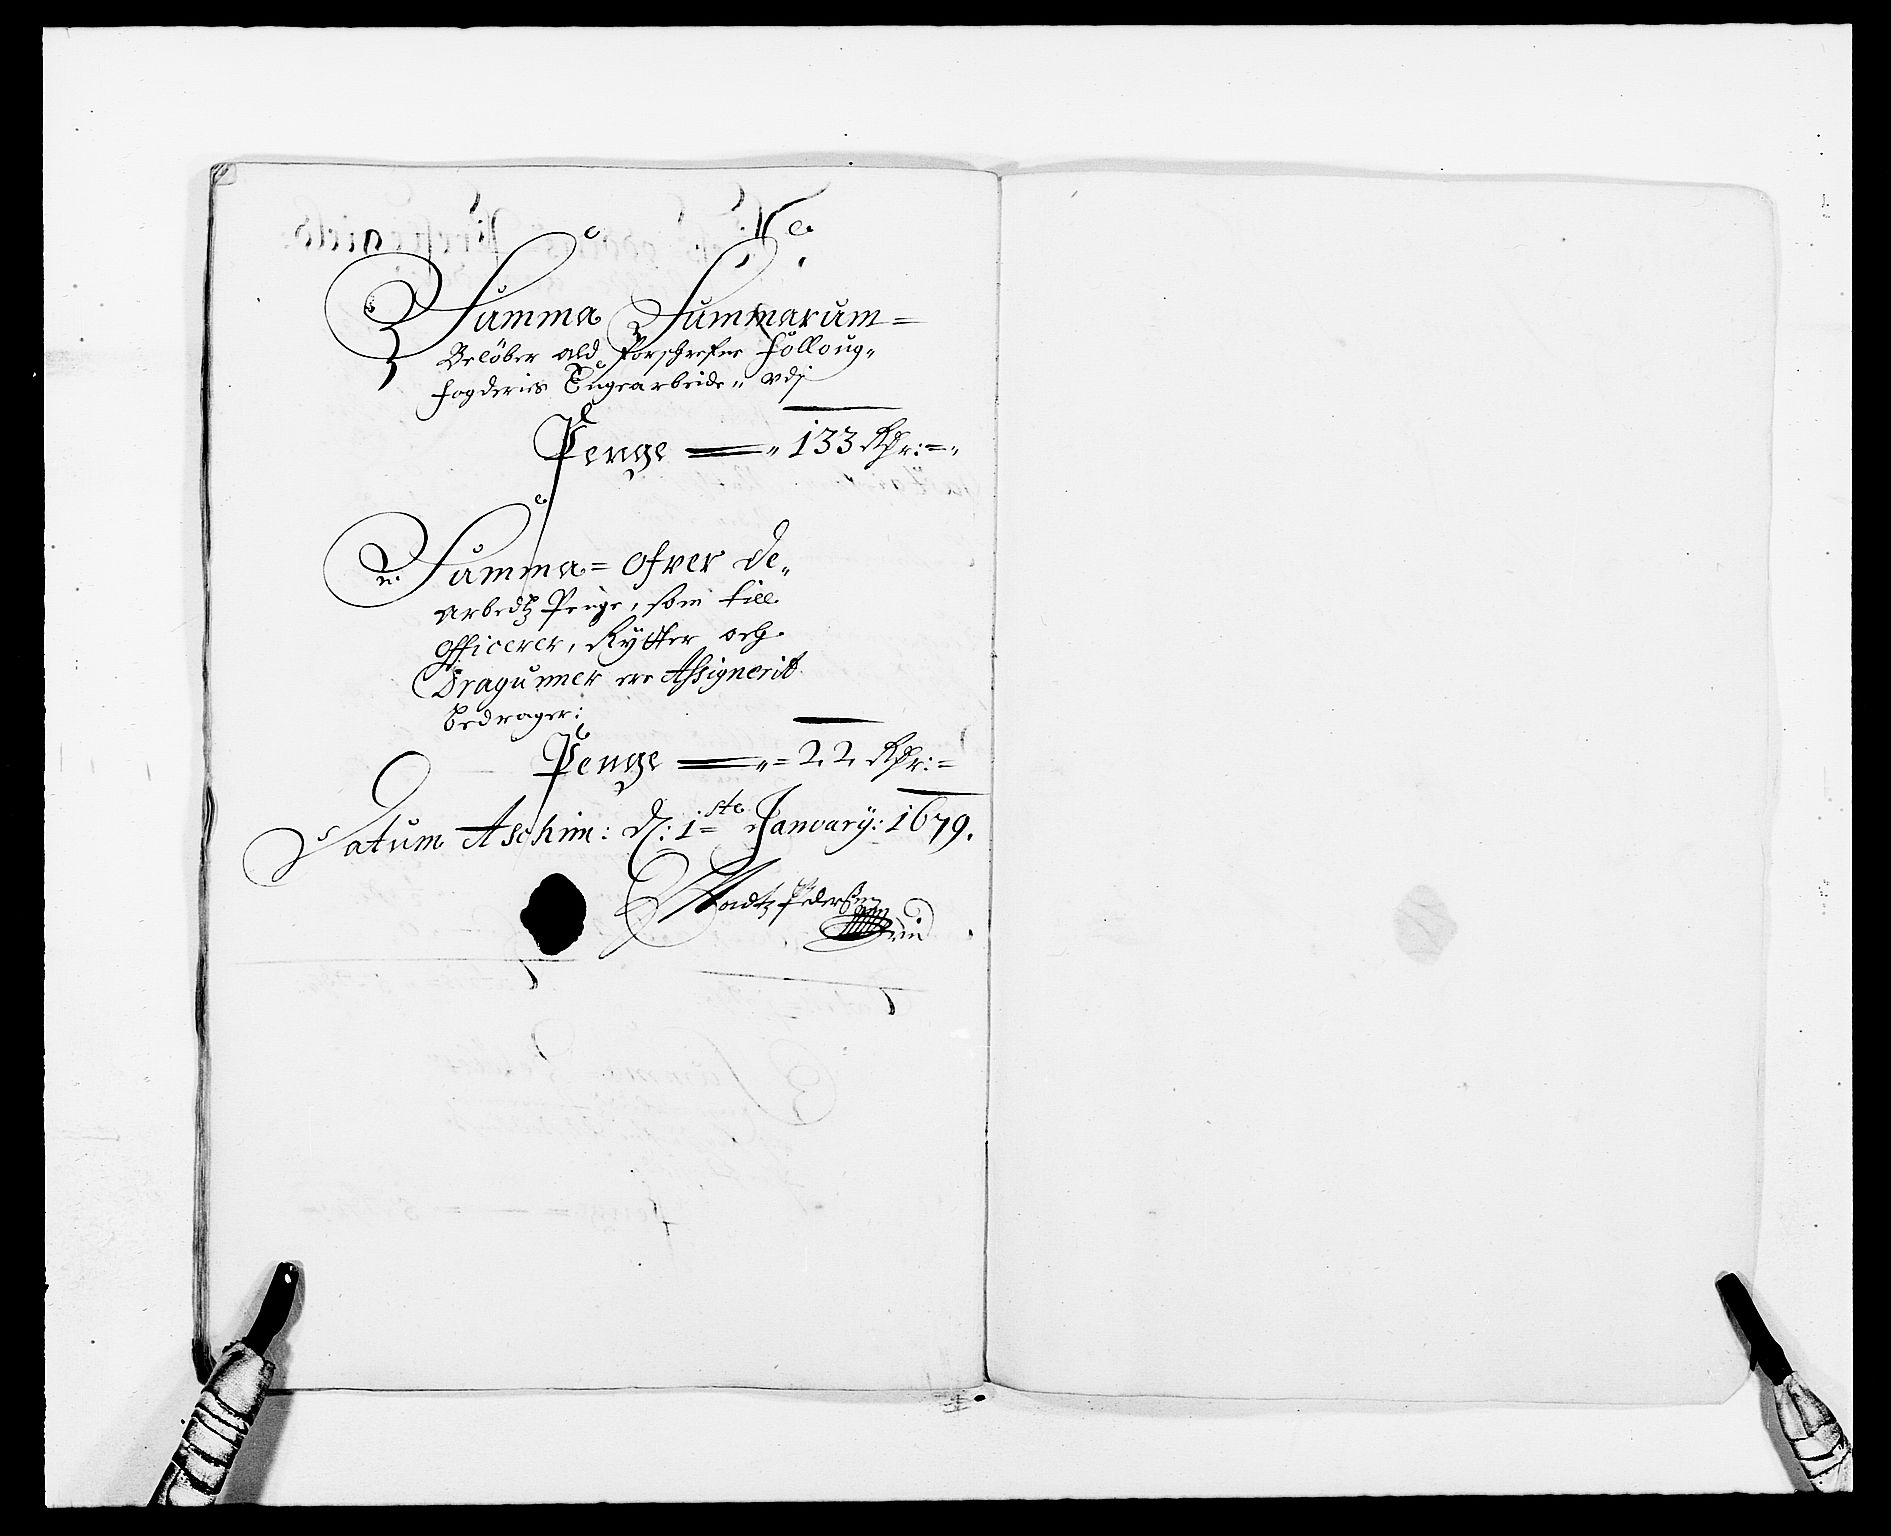 Summa Summarum=
Belöber ald forschrefne Folloug„
fogderies Tugearbeide„ vdj
Penge ═ „ 133 Rdr:=„
Summa= ofver de„
Arbedtz Penge, som till
officerer, Rÿtter och
Dragunner ere Assignerit
bedrager:
Penge ═ „= 22 Rdr:=
Datum Aschim: d: 1ste January: 1679.
Madtz Pedersen